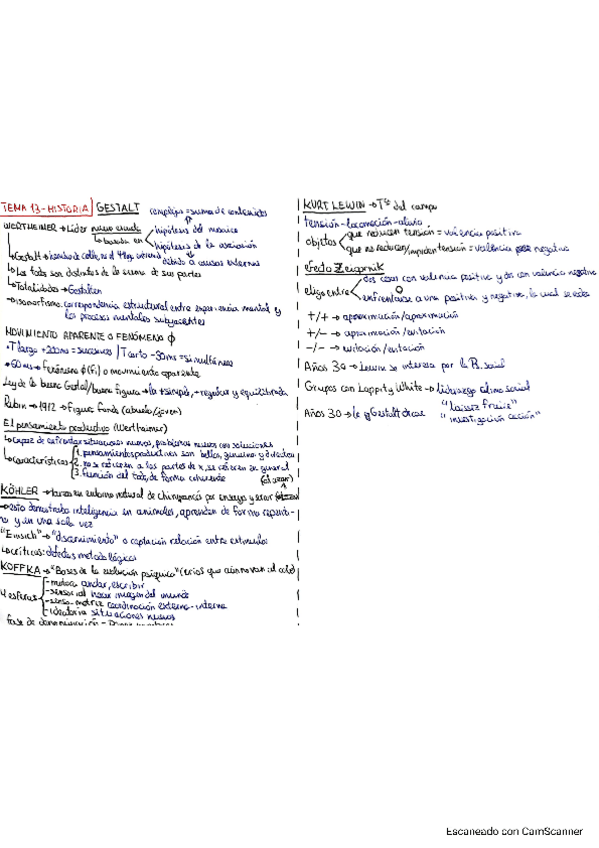 TEMA 13 - HISTORIA GESTALT
complejos = suma de contenidos
WERTHEIMER → Líder nueva escuela
↳ basada en
hipótesis del mosaico
hipótesis de la asociación
debido a causas externas
↳ Gestalt
↳ Los todos son distintos de la suma de sus partes
↳ Totalidades → Gestalten
→ Isomorfismo: correspondencia estructural entre experiencia mental y
los procesos mentales subyacentes
MOVIMIENTO APARENTE O FENÓMENO ϕ
• T largo + 200ms = sucesivos / T corto - 30ms = simultáneos
• 60ms → Fenómeno ϕ (Fi) o movimiento aparente
Ley de la buena Gestalt/buena figura → la + simple, + regular y equilibrada
Rubin → 1912 → Figura fondo (abuela/joven)
El pensamiento productivo (Wertheimer)
↳ capaz de enfrentar situaciones nuevas, problemas nuevos con soluciones
↳ características
1. pensamientos productivos son bellos, genuinos y directos
2. no se refieren a las partes de x, se refieren en general
3. función del todo, de forma coherente
KÖHLER → tareas en entorno natural de chimpancé por ensayo y error
→ esto demostraba inteligencia en animales, aprenden de forma repenti-
na y en una sola vez
"Einsich" → "discernimiento" o captación relación entre estímulos
↳ críticas: defectos metodológicos
KOFFKA → "Bases de la evolución psíquica" (críos que aún no van al cole)
4 esferas
- motora: andar, escribir
- sensorial: hacer imagen del mundo
- senso-motriz: coordinación externa-interna
- ideatoria: situaciones nuevas
fase de denominación -
KURT LEWIN → Tª del campo
tensión - locomoción - alivio
objetos
que reducen tensión = valencia positiva
que no reducen/impiden tensión = valencia negativa
efecto Zeigarnik
elijo entre
dos cosas con valencia positiva y dos con valencia negativa
enfrentarse a una positiva y negativa, lo cual se
+/+ → aproximación/aproximación
+/- → aproximación/evitación
-/- → evitación/evitación
Años 30 → Lewin se interesa por la P. social
Grupos con Lippit y White → liderazgo clima social
"laissez freire"
"investigación acción"
Años 30 → Gestálticae
Escaneado con CamScanner